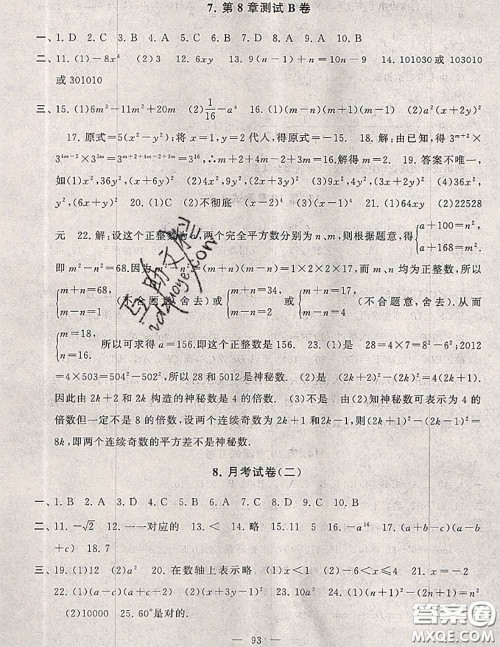 7. 第8章测试B卷
一、1. D 2. C 3. A 4. B 5. D 6. B 7. A 8. D 9. A 10. B
二、11. (1)-8x⁶ (2)3 12. 6xy 13. 9(n-1)+n=10n-9 14. 101030 或 103010
或 301010
三、15. (1)6m³-11m²+20m (2)1/16-a⁴ 16. (1)(m-n)(m+1)(m-1) (2)a²(x+2y)²
17. 原式=5(x²-y²);将 x=1,y=2 代人,得原式=-15. 18. 解:由已知,得 3^(m+2)×
3^(4m-2)×3^(3m)=3^(m+2+4m-2+3m)=3¹⁶,∴m+2+4m-2+3m=16.解得 m=2. 19. 答案不唯一,
如(1)x²,36y²,(x+6y)² (2)4x²,9y²,(2x+3y)² (3)x²,4y²,(x+2y)² (4)36x²,
y²,(6x+y)² 20. (1)C (2)不彻底 (x-2)⁴ (3)(x-1)⁴ 21. (1)64xy (2)22528
元 22. 解:设这个正整数为a,两个完全平方数分别为n、m,则根据题意,得{a+100=n², a+168=m².
即 m²-n²=68.因为(m+n)(m-n)=1×2×2×17,而 m、n 均为正整数,所以
{m+n=68, m-n=1 (不合题意,舍去)或{m+n=34, m-n=2 或{m+n=17, m-n=4 (不合题意,舍去).从而
{m=18, n=16. 所以可求得 a=156.即这个正整数是 156. 23. (1)是 28=4×7=8²-6²;2012
=4×503=504²-502²,所以 28 和 5012 是神秘数. (2)是 (2k+2)²-(2k)²=4(2k+1),
因此由 2k+2 和 2k 构造的神秘数是 4 的倍数. (3)不是 由(2)知神秘数可表示为 4 的
倍数但一定不是 8 的倍数,设两个连续奇数为 2k+1 和 2k-1,则(2k+1)²-(2k-1)²=
8k,即两个连续奇数的平方差不是神秘数.
8. 月考试卷(二)
一、1. B 2. A 3. C 4. D 5. B 6. A 7. D 8. C 9. D 10. B
二、11. -√2 12. 一一对应的 13. < < 14. 略 15. 11 5 16. -a¹⁶ 17. (a-b+c)(a-b
+c) 18. 7
三、19. (1)12 (2)a² 20. 在数轴上表示略 (1)x<1 (2)-6<x≤4 21. -1<a≤-2/3
22. (1)(a-c)(a+c+2) (2)(a+c)(a-c+2b) 23. (1)a⁴+4 (2)x³-y³ 24. (1)3/10
(2)10000 25. 60°是对的.
93
答案圈
MXQE.COM